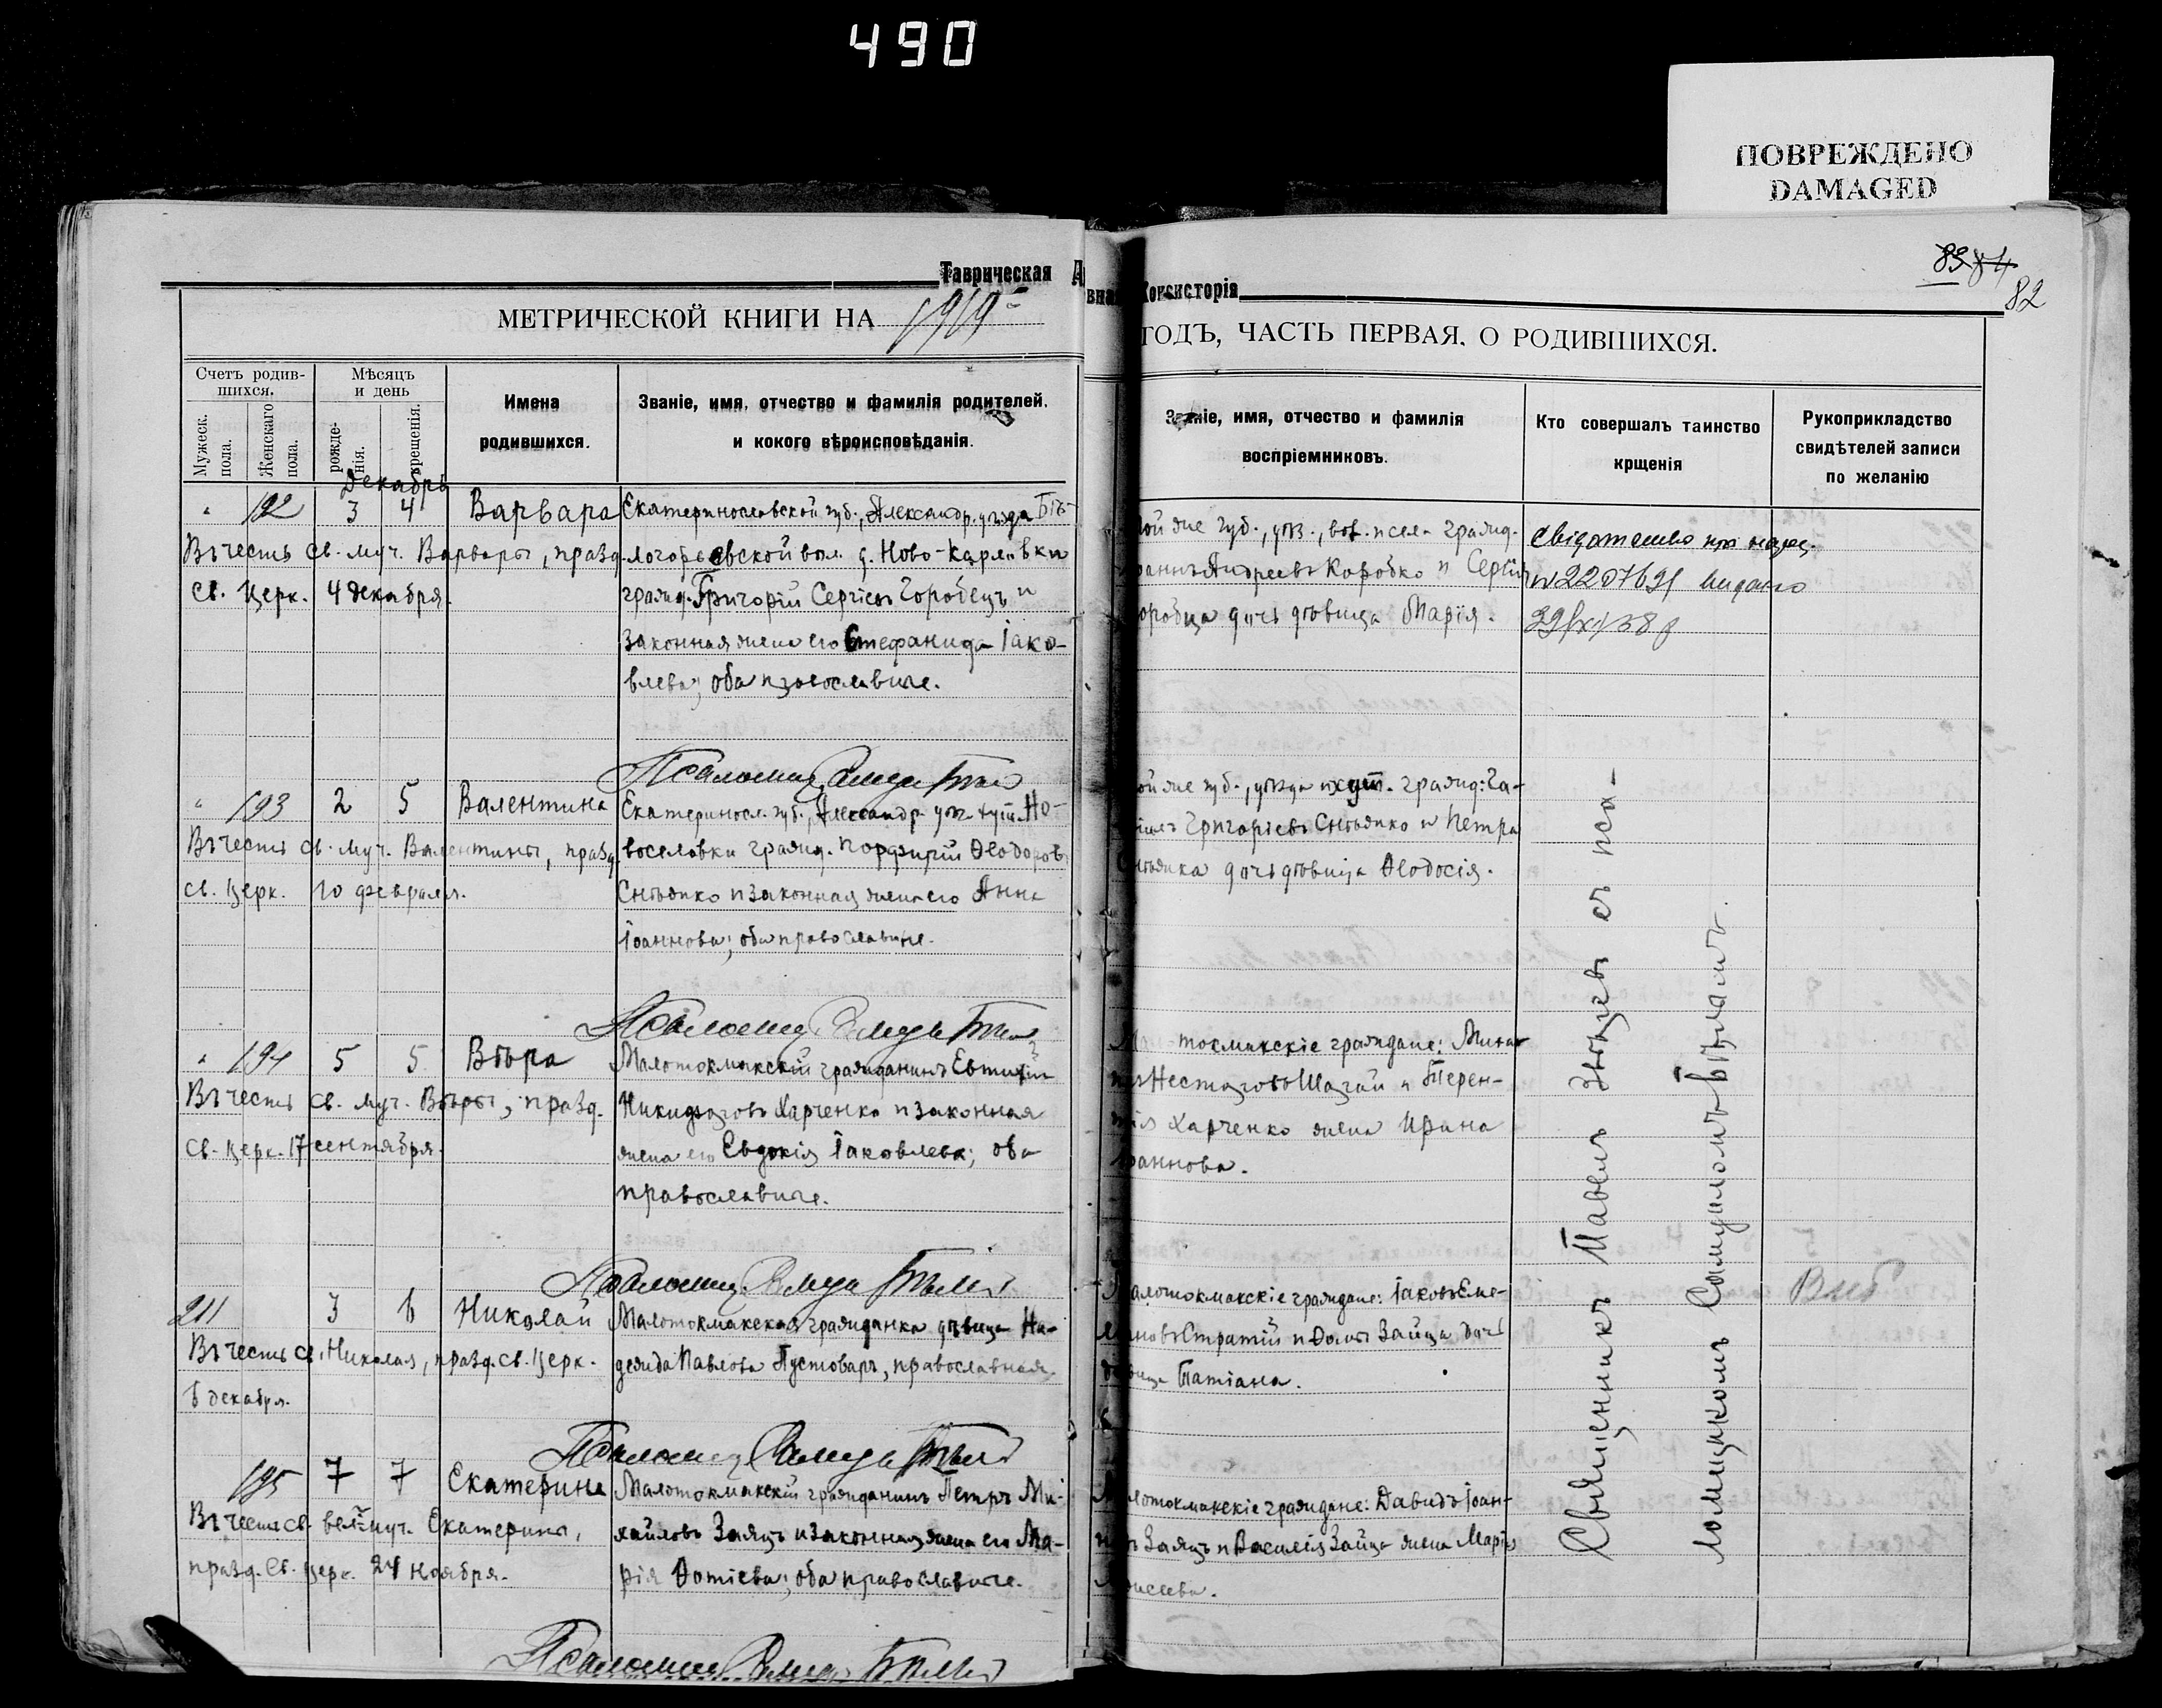 490
ПОВРЕЖДЕНО
DAMAGED
83 84
82
Таврическая
Консисторія
МЕТРИЧЕСКОЙ КНИГИ НА 1919
ГОДЪ, ЧАСТЬ ПЕРВАЯ. О РОДИВШИХСЯ.
Счетъ родив-
шихся.
Мужеск. пола.
Женскаго пола.
Мѣсяцъ
и день
рожде-
нія.
крещенія.
Имена
родившихся.
Званіе, имя, отчество и фамилія родителей.
и кокого вѣроисповѣданія.
Званіе, имя, отчество и фамилія
воспріемниковъ.
Кто совершалъ таинство
крщенія
Рукоприкладство
свидѣтелей записи
по желанію
Декабрь
" 192 3 4 Варвара
Въ честь св. муч. Варвары, празд.
св. Церк. 4 декабря.
Екатеринославской губ., Александр. уѣзда Бѣ-
логорьевской вол. д. Ново-Карловки
гражд. Григорій Сергіевъ Городецъ и
законная жена его Стефанида Іако-
влева; оба православные.
ой же губ., уѣз., вол. и села гражд.
Андреевъ Коробко и Сергія
дочь дѣвица Марія.
N 220769
Псаломщ. Самуилъ Бѣлый
" 193 2 5 Валентина
Въ честь св. муч. Валентины, празд.
св. Церк. 10 февраля.
Екатериносл. губ., Александр. уѣз. хут. Но-
воселовки гражд. Порфирій Ѳеодоровъ
Снѣжко и законная жена его Анна
Іоаннова; оба православные.
ой же губ., уѣзда и хут. гражд.: Га-
іилъ Григоріевъ Снѣжко и Петра
Снѣжка дочь дѣвица Ѳеодосія.
Псаломщ. Самуилъ Бѣлый
" 194 5 5 Вѣра
Въ честь св. муч. Вѣры, празд.
св. Церк. 17 сентября.
Малотокмакскій гражданинъ Евтихій
Никифоровъ Харченко и законная
жена его Евдокія Іаковлева; оба
православные.
токмакскіе граждане: Мина
Несторовъ Шагай и Терен-
тія Харченко жена Ирина
Іоаннова.
Псаломщ. Самуилъ Бѣлый
211 3 6 Николай
Въ честь св. Николая, празд. св. Церк.
6 декабря.
Малотокмакская гражданка дѣвица На-
дежда Павлова Пустоваръ, православная.
Малотокмакскіе граждане: Іаковъ Еме-
ляновъ Стратій и Ѳомы Зайца дочь
дѣвица Татіана.
Псаломщ. Самуилъ Бѣлый
195 7 7 Екатерина
Въ честь св. вел. муч. Екатерины,
празд. св. Церк. 24 ноября.
Малотокмакскій гражданинъ Петръ Ми-
хайловъ Заяцъ и законная жена его Ма-
рія Ѳотіева; оба православные.
Малотокмакскіе граждане: Давидъ Іоан-
нъ Заяцъ и Василія Зайца жена Марія
Псаломщ. Самуилъ Бѣлый
Священникъ Павелъ съ пса-
ломщикомъ Самуиломъ Бѣлымъ.